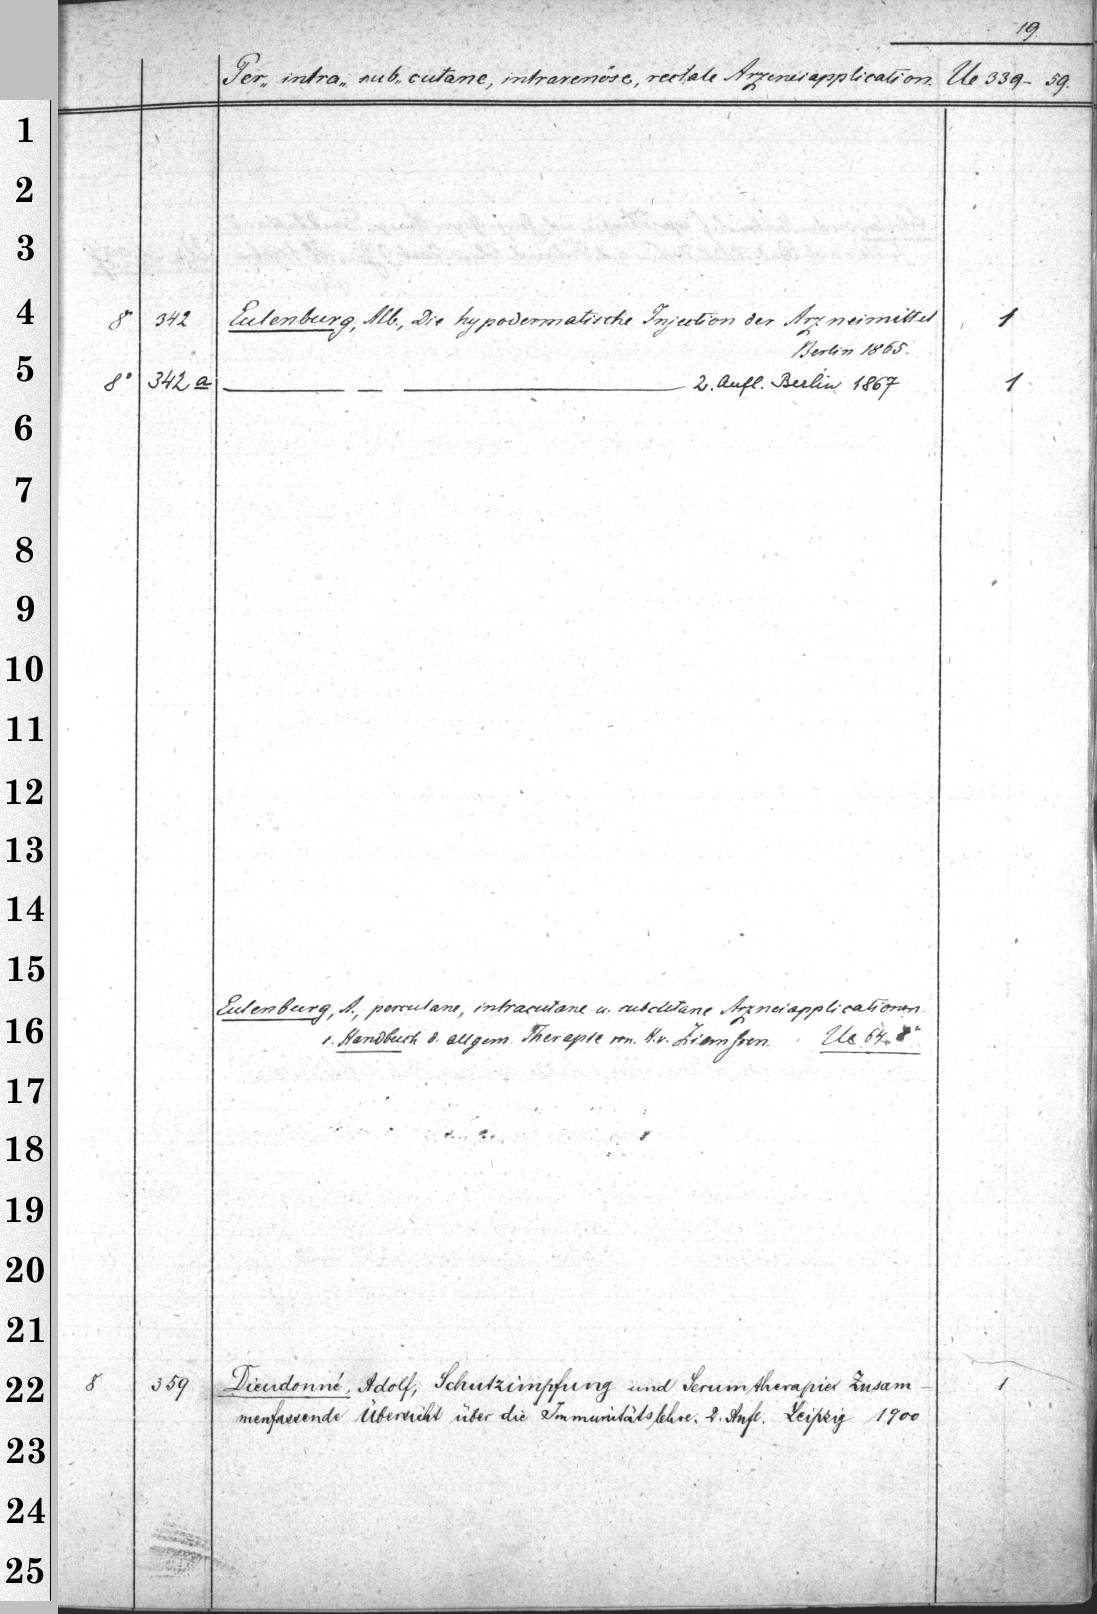 19.
Per„ intra„ sub„ cutane, intravenöse, rectale Arzneiapplication. Ue 339- 59.
1
2
3
4 8° 342 Eulenburg, Alb., Die hypodermatische Injection der Arzneimittel 1
Berlin 1865.
5 8° 342 a ——— — ——— 2. Aufl. Berlin 1867 1
6
7
8
9
10
11
12
13
14
15
Eulenburg, A., percutane, intracutane u. subcutane Arzneiapplicationen.
16 s. Handbuch d. allgem. Therapie von H. v. Ziemssen. Ue 64. 8°
17
18
19
20
21
22 8 359 Dieudonné, Adolf, Schutzimpfung und Serumtherapie Zusam- 1
menfassende Übersicht über die Immunitätslehre. 2. Aufl. Leipzig 1900
23
24
25